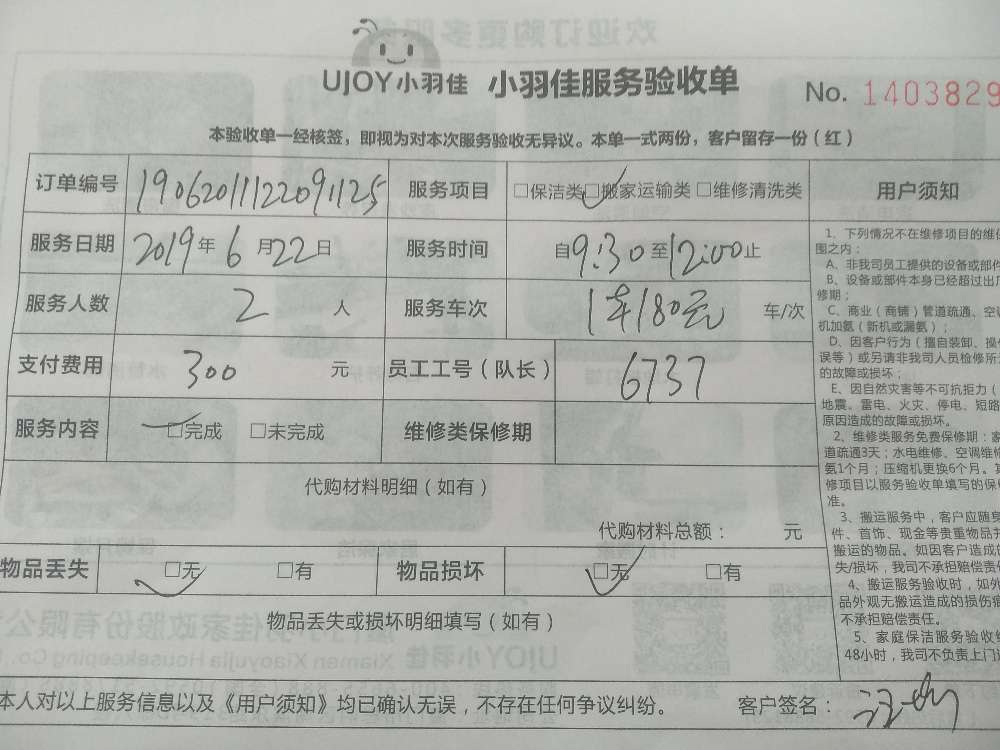 UJOY小羽佳 小羽佳服务验收单 No. 1403829
本验收单一经核签，即视为对本次服务验收无异议。本单一式两份，客户留存一份（红）
订单编号 19062011122091125 服务项目 □保洁类 □搬家运输类 □维修清洗类
服务日期 2019年6月22日 服务时间 自9:30至12:00止
服务人数 2 人 服务车次 1车180元 车/次
支付费用 300 元 员工工号（队长） 6737
服务内容 □完成 □未完成 维修类保修期
代购材料明细（如有）
代购材料总额： 元
物品丢失 □无 □有 物品损坏 □无 □有
物品丢失或损坏明细填写（如有）
本人对以上服务信息以及《用户须知》均已确认无误，不存在任何争议纠纷。 客户签名：
用户须知
1、下列情况不在维修项目的维
围之内：
A、非我司员工提供的设备或部件
B、设备或部件本身已经超过出
修期；
C、商业（商铺）管道疏通、空
机加氨（新机或漏氨）；
D、因客户行为（擅自装卸、操
误等）或另请非我司人员检修所
的故障或损坏；
E、因自然灾害等不可抗拒力（
地震。雷电、火灾、停电、短路
原因造成的故障或损坏。
2、维修类服务免费保修期：
道疏通3天；水电维修、空调维
氨1个月；压缩机更换6个月。
修项目以服务验收单填写的保
准。
3、搬运服务中，客户应随身
件、首饰、现金等贵重物品
搬运的物品。如因客户造成
失/损坏，我司不承担赔偿责
4、搬运服务验收时，如外
品外观无搬运造成的损伤
不承担赔偿责任。
5、家庭保洁服务验收
48小时，我司不负责上门